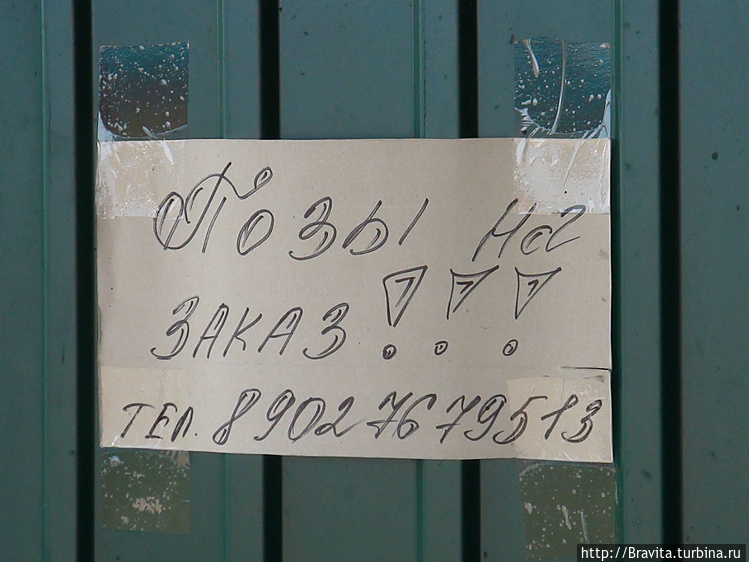 Позы на
ЗАКАЗ !!!
ТЕЛ. 89027679513
http://Bravita.turbina.ru